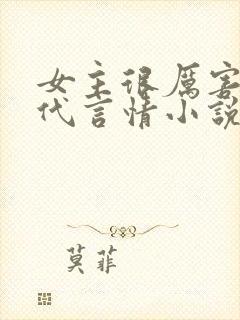 女主很厉害
代言情小說
莫菲